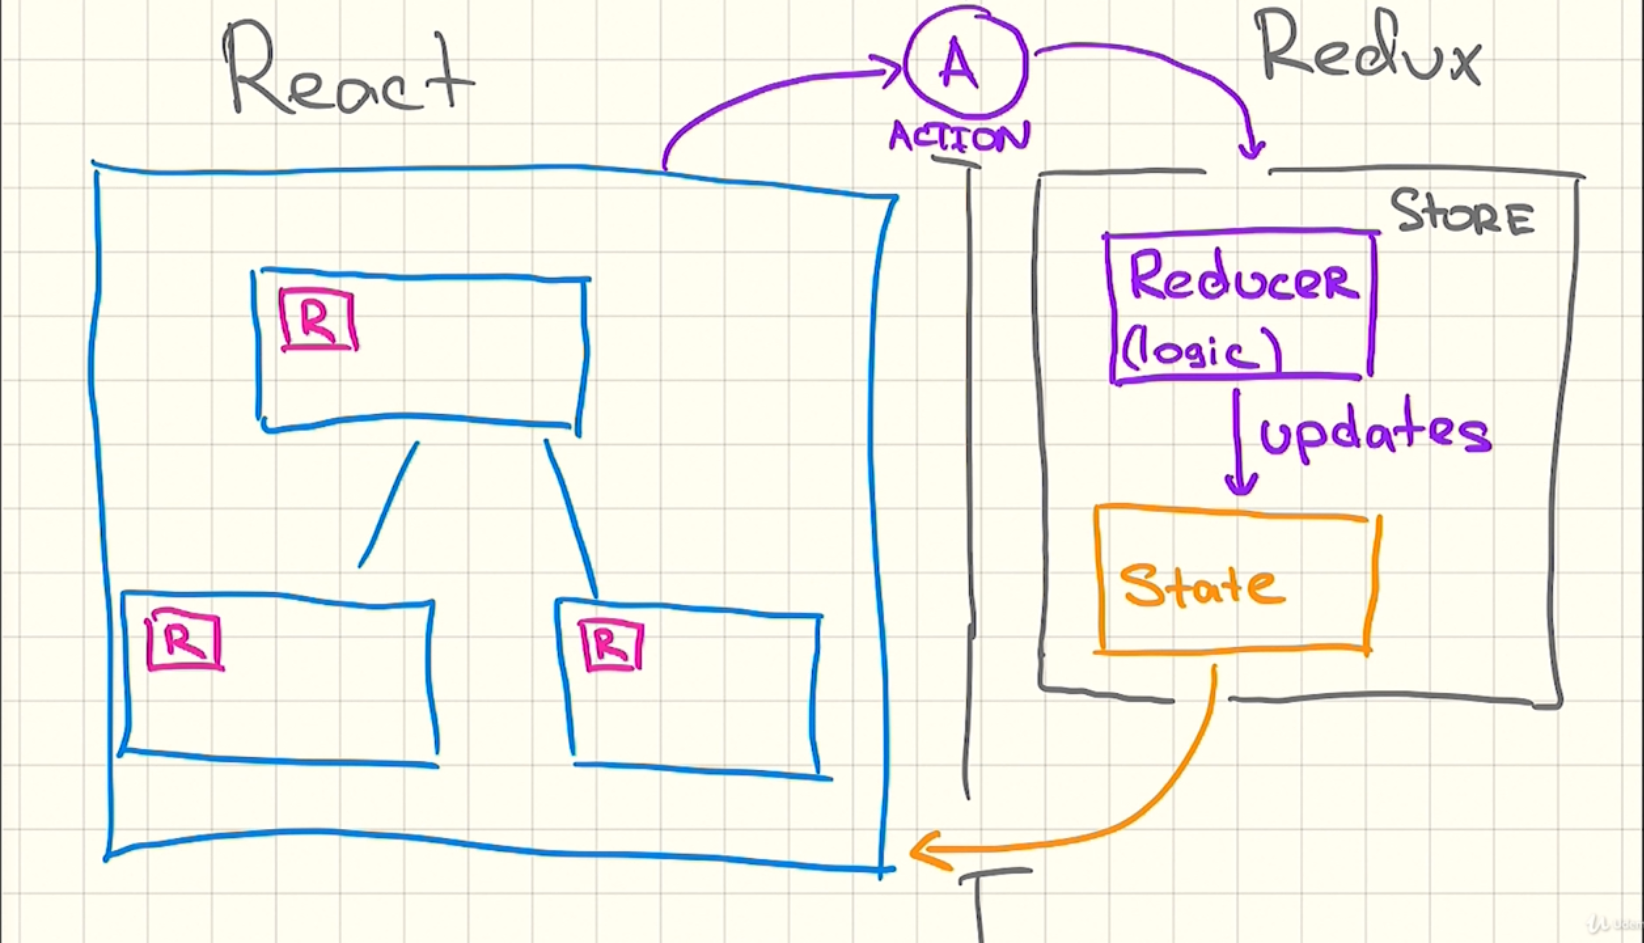 React
A
ACTION
Redux
STORE
R
Reducer
(logic)
updates
State
R
R